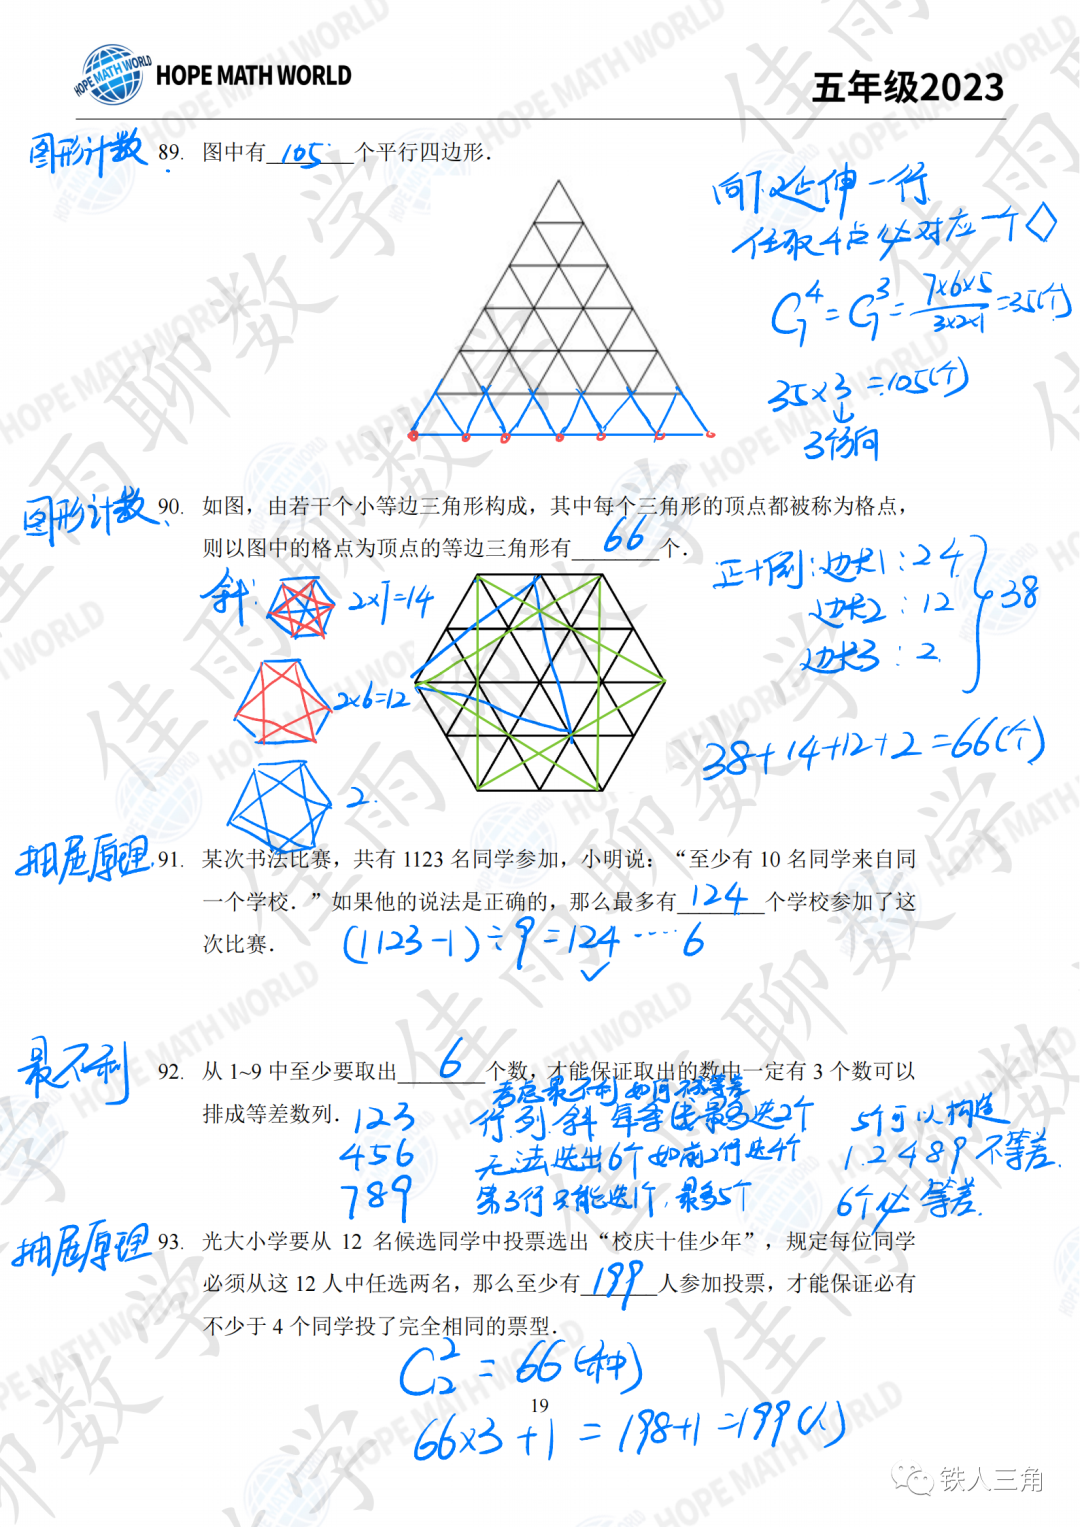 HOPE MATH WORLD
五年级2023
图形计数 89. 图中有 105 个平行四边形.
向下延伸一行
任取4点必对应一个◇
C₇⁴=C₇³=7×6×5/3×2×1=35(个)
35×3=105(个)
↓
3方向
图形计数 90. 如图，由若干个小等边三角形构成，其中每个三角形的顶点都被称为格点，
则以图中的格点为顶点的等边三角形有 66 个.
斜: 2×7=14
2×6=12
2.
正+倒:边长1:24
边长2:12
边长3:2
38
38+14+12+2=66(个)
抽屉原理 91. 某次书法比赛，共有 1123 名同学参加，小明说：“至少有 10 名同学来自同
一个学校．”如果他的说法是正确的，那么最多有 124 个学校参加了这
次比赛.
(1123-1)÷9=124……6
最不利 92. 从 1~9 中至少要取出 6 个数，才能保证取出的数中一定有 3 个数可以
排成等差数列.
考虑最不利 如何不等差
123 行.列.斜 每条线最多选2个 5个可以构造
456 无法选出6个 如前2行选4个 1.2 4 8 9 不等差.
789 第3行只能选1个,最多5个 6个必等差.
抽屉原理 93. 光大小学要从 12 名候选同学中投票选出“校庆十佳少年”，规定每位同学
必须从这 12 人中任选两名，那么至少有 199 人参加投票，才能保证必有
不少于 4 个同学投了完全相同的票型.
C₁₂²=66(种)
19
66×3+1=198+1=199(人)
铁人三角